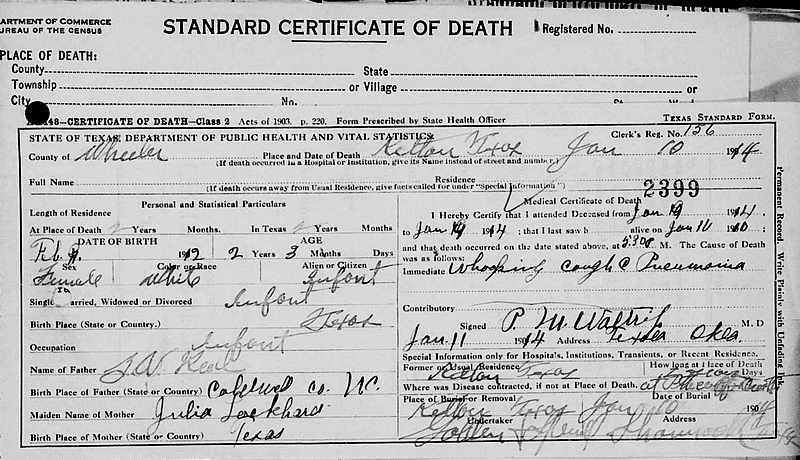 STANDARD CERTIFICATE OF DEATH
ARTMENT OF COMMERCE
UREAU OF THE CENSUS
Registered No.
PLACE OF DEATH:
County State
Township or Village or
City No.
148—CERTIFICATE OF DEATH—Class 2 Acts of 1903. p. 220. Form Prescribed by State Health Officer TEXAS STANDARD FORM.
STATE OF TEXAS, DEPARTMENT OF PUBLIC HEALTH AND VITAL STATISTICS. Clerk's Reg. No. 156
County of Wheeler Place and Date of Death Kelton Texas Jan 10 1914
(If death occurred in a Hospital or Institution, give its Name instead of street and number.)
Full Name Residence
(If death occurs away from Usual Residence, give facts called for under "Special Information")
2399
Personal and Statistical Particulars
Length of Residence
At Place of Death 2 Years Months. In Texas 2 Years Months.
DATE OF BIRTH AGE
1912 2 Years 3 Months Days
Sex Color or Race Alien or Citizen
Female White Infant
Single, Married, Widowed or Divorced Infant
Birth Place (State or Country.) Texas
Occupation Infant
Name of Father
Birth Place of Father (State or Country) Caldwell Co. NC.
Maiden Name of Mother Julia Lockhard
Birth Place of Mother (State or Country) Texas
Medical Certificate of Death
I Hereby Certify that I attended Deceased from Jan 1914.
to Jan 1914; that I last saw h alive on Jan 10
and that death occurred on the date stated above, at M. The Cause of Death
was as follows:
Immediate Whooping cough & Pneumonia
Contributory
Signed P. M. M. D
Jan 11 1914 Address Texola Okla
Special Information only for Hospitals, Institutions, Transients, or Recent Residence.
Former or Usual Residence How long at Place of Death
Kelton Texas Days
Where was Disease contracted, if not at Place of Death.
Place of Burial or Removal Date of Burial
Kelton Texas Jan 10 190
Undertaker Address
Shamrock
Permanent Record. Write Plainly with Unfading Ink.